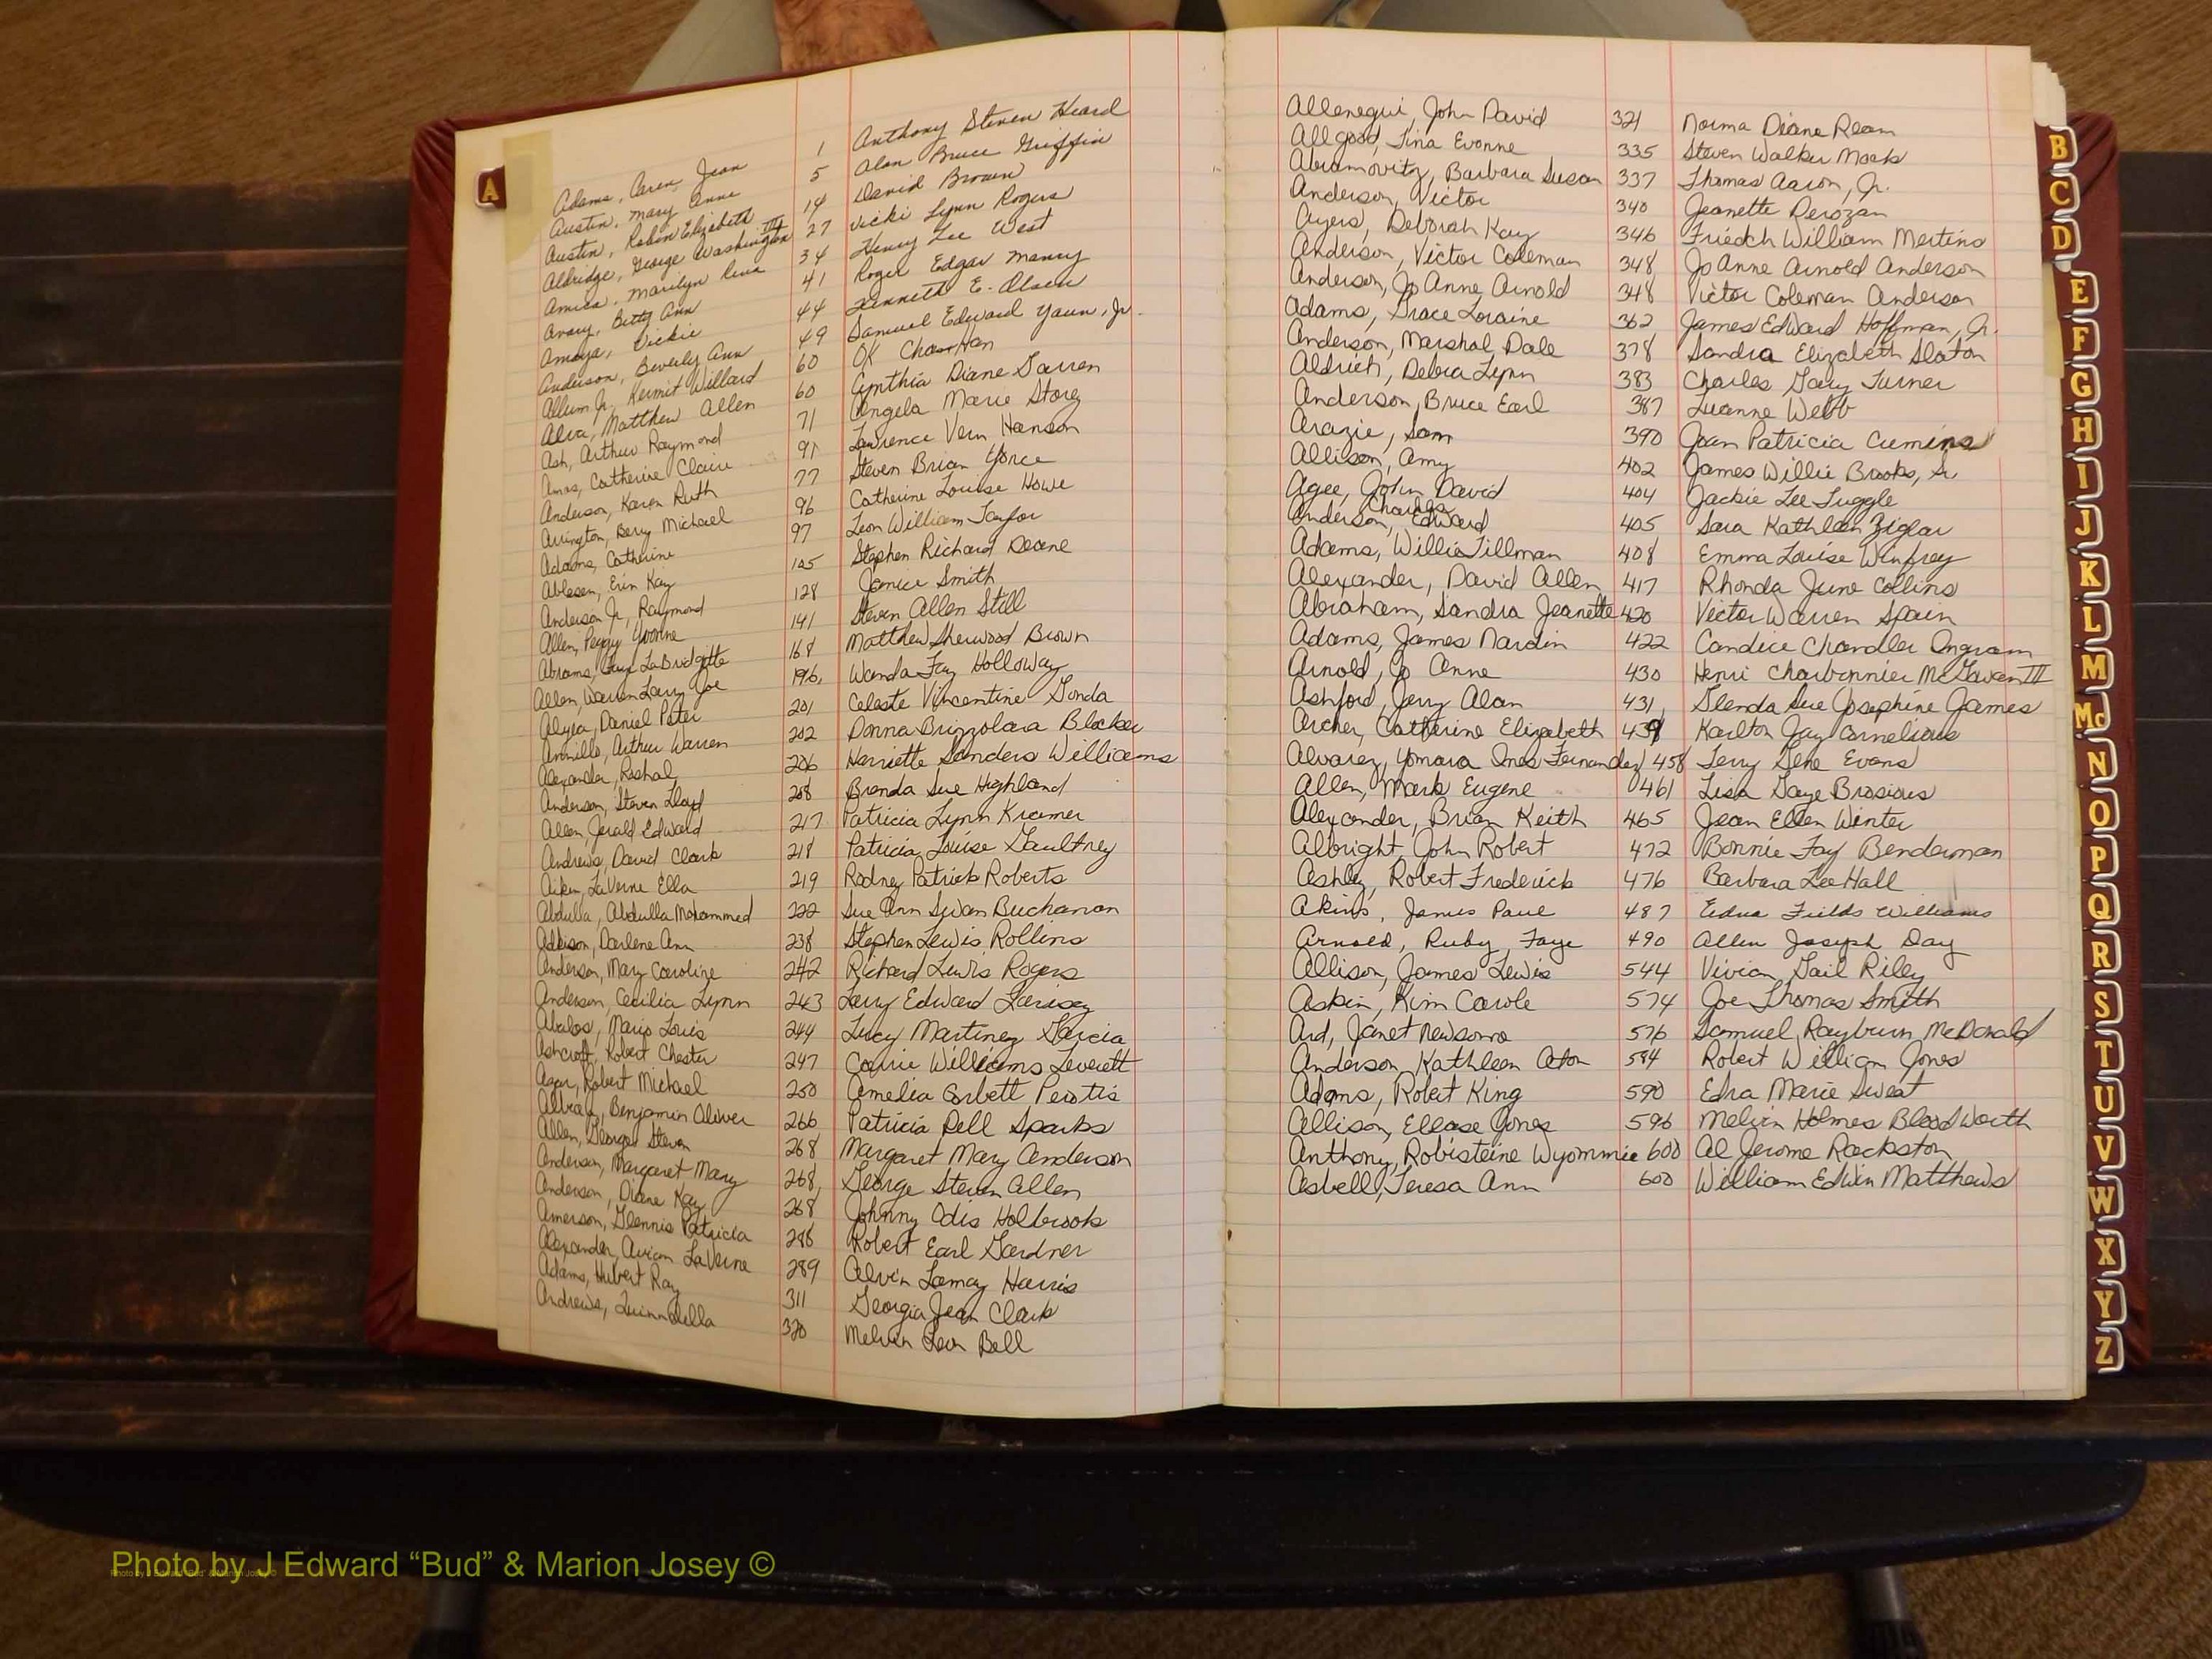 A
Adams, Caren Jean 1 Anthony Steven Heard
Austin, Mary Anne 5 Alan Bruce Griffin
Austin, Robin Elizabeth 14 David Brown
Aldridge, George Washington III 27 Vicki Lynn Rogers
Marilyn 34 Henry Lee West
Avary, Betty Ann 41 Roger Edgar Manry
Amaya, Vickie 44 Kenneth E. Olsen
Anderson, Beverly Ann 49 Samuel Edward Yaun, Jr.
Allum Jr, Kermit Willard 60 OK
Alva, Matthew Allen 60 Cynthia Diane
Ash, Arthur Raymond 71 Angela Marie Story
Amos, Catherine Claire 91 Lawrence Vern Hanson
Anderson, Karen Ruth 77 Steven Brian Yorce
Arrington, Berry Michael 96 Catherine Louise Howe
Adams, Catherine 97 Leon William Taylor
Ableson, Erin Kay 105 Stephen Richard Deane
Anderson Jr, Raymond 128 Janice Smith
Allen, Peggy Yvonne 141 Steven Allen Still
Abrams, LaBridgette 168 Matthew Sherwood Brown
Allen, Warren Larry Joe 196 Wanda Fay Holloway
Daniel Peter 201 Celeste Vincentine Gonda
Arthur Warren 202 Donna Brizzolara Blocker
Alexander, Rashal 206 Harriette Sanders Williams
Anderson, Steven Lloyd 208 Brenda Sue Highland
Allen, Jerald Edward 217 Patricia Lynn Kramer
Andrews, David Clark 218 Patricia Louise Gaultney
Aiken, LaVerne Ella 219 Rodney Patrick Roberts
Abdulla, Abdulla Mohammed 222 Sue Ann Swan Buchanan
Addison, Darlene Ann 238 Stephen Lewis Rollins
Anderson, Mary Caroline 242 Richard Lewis Rogers
Anderson, Cecilia Lynn 243 Larry Edward Farisey
Abalos, Mario Louis 244 Lucy Martinez Garcia
Ashcroft, Robert Chester 247 Carrie Williams Leverett
Agar, Robert Michael 250 Amelia Corbett
Benjamin Oliver 266 Patricia Dell Sparks
Allen, George Steven 268 Margaret Mary Anderson
Anderson, Margaret Mary 268 George Steven Allen
Anderson, Diane Kay 268 Johnny Odis Holbrooks
Amerson, Glennis Patricia 286 Robert Earl Gardner
Alexander, Avian LaVerne 289 Alvin Lamay Harris
Adams, Hubert Ray 311 Georgia Jean Clark
Andrews, Quinn 320 Melvin Leon Bell
Allenegui, John David 321 Norma Diane Ream
Allgood, Tina Evonne 335 Steven Walker Mock
Abramovitz, Barbara Susan 337 Thomas Aaron, Jr.
Anderson, Victor 340 Jeanette Perozan
Ayers, Deborah Kay 346 William Mertins
Anderson, Victor Coleman 348 Jo Anne Arnold Anderson
Anderson, Jo Anne Arnold 348 Victor Coleman Anderson
Adams, Grace Loraine 362 James Edward Hoffman, Jr.
Anderson, Marshal Dale 378 Sandra Elizabeth Slaton
Aldrich, Debra Lynn 383 Charles Gary Turner
Anderson, Bruce Earl 387 Luanne Webb
Arazie, Sam 390 Joan Patricia Cumins
Allison, Amy 402 James Willie Brooks, Sr.
Agee, John David 404 Jackie Lee Tuggle
Anderson, Charles Edward 405 Sara Kathleen Ziglar
Adams, Willie Tillman 408 Emma Louise Winfrey
Alexander, David Allen 417 Rhonda June Collins
Abraham, Sandra Jeanette 420 Victor Warren Spain
Adams, James Nardin 422 Candice Chandler Ingram
Arnold, Jo Anne 430 Henri Charbonnier McGowen III
Ashford, Jerry Alan 431 Glenda Sue Josephine James
Archer, Catherine Elizabeth Karlton Jay Cornelious
Alvarez, Yomara Ines Fernandez 458 Terry Gene Evans
Allen, Mark Eugene 461 Lisa Gaye Brosious
Alexander, Brian Keith 465 Jean Ellen Winter
Albright, John Robert 472 Bonnie Fay Benderman
Ashley, Robert Frederick 476 Barbara Lee Hall
Akins, James Paul 487 Edna Fields Williams
Arnold, Ruby Faye 490 Allen Joseph Day
Allison, James Lewis 544 Vivian Gail Riley
Askin, Kim Carole 574 Joe Thomas Smith
Ard, Janet Newsome 576 Samuel Rayburn McDonald
Anderson, Kathleen Aton 584 Robert William Jones
Adams, Robert King 590 Edna Marie Sweat
Allison, Ellease Jones 596 Melvin Holmes Bloodworth
Anthony, Robisteine Wyommie 600 Al Jerome Rackston
Asbell, Teresa Ann 600 William Edwin Matthews
B
C
D
E
F
G
H
I
J
K
L
M
Mc
N
O
P
Q
R
S
T
U
V
W
X
Y
Z
Photo by J Edward “Bud” & Marion Josey ©
Photo by J Edward "Bud" & Marion Josey ©